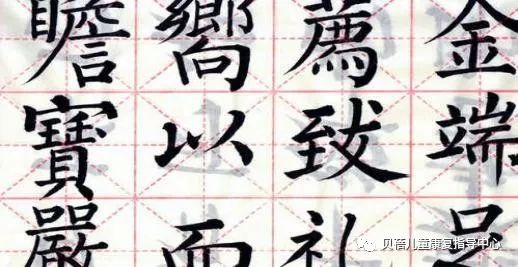 金端足
薦致礼
嚮以而
瞻寶嚴
贝蓓儿童康复指导中心